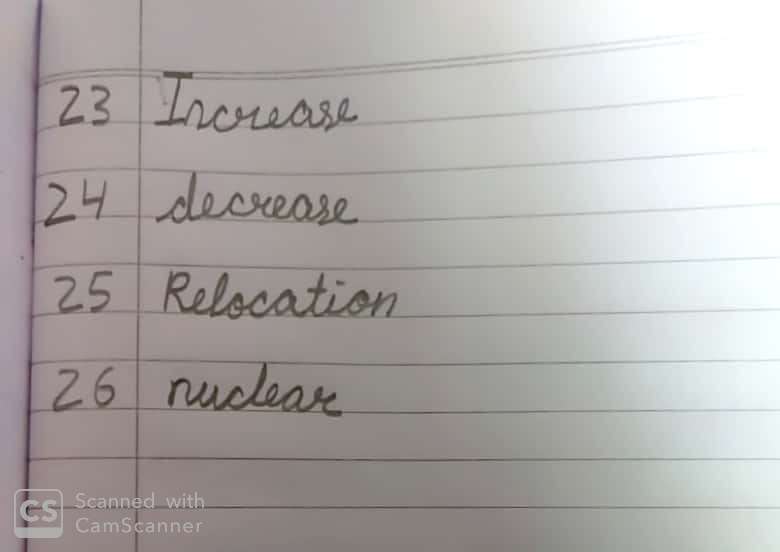 23 Increase
24 decrease
25 Relocation
26 nuclear
CS Scanned with
CamScanner